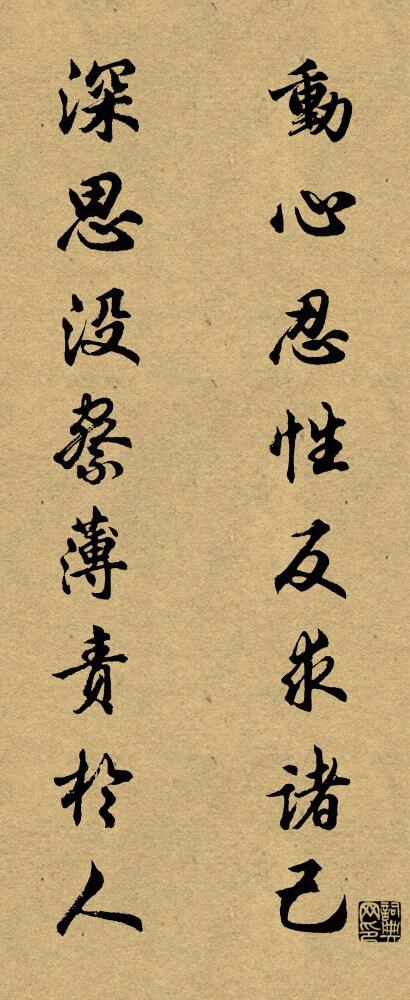 動心忍性反求諸己
深思没察薄責於人
詞典网印